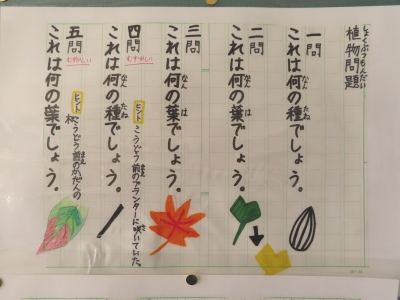 しょくぶつもんだい
植物問題
一問
これは何の種でしょう。
なん
たね
二問
これは何の葉でしょう。
なん
は
三問
これは何の葉でしょう。
なん
は
四問
むずかしい
これは何の種でしょう。
なん
たね
ヒント
こうどう前のプランターに咲いていた。
五問
むずかしい
これは何の葉でしょう。
ヒント
こうどう前のかだんの